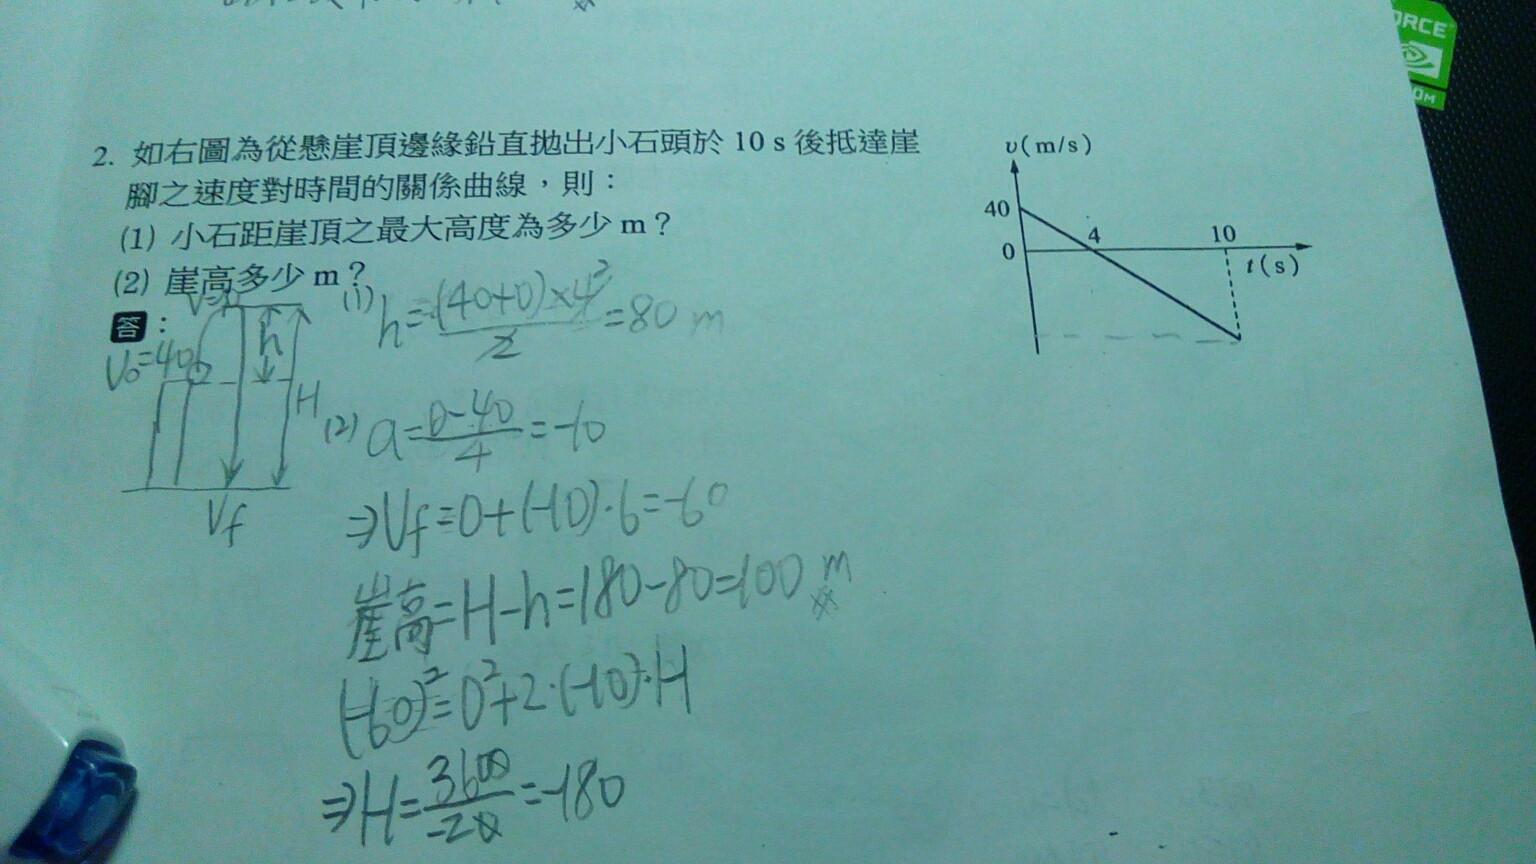 ORCE
OM
2. 如右圖為從懸崖頂邊緣鉛直拋出小石頭於 10 s 後抵達崖
腳之速度對時間的關係曲線,則:
(1) 小石距崖頂之最大高度為多少 m?
(2) 崖高多少 m?
答:
υ(m/s)
40
0
4
10
t(s)
V=0
V₀=40
h
H
Vf
(1) h=(40+0)×4/2=80 m
(2) a=0-40/4=-10
⇒Vf=0+(-10)·6=-60
崖高=H-h=180-80=100 m
(-60)²=0²+2·(-10)·H
⇒H=3600/-20=-180